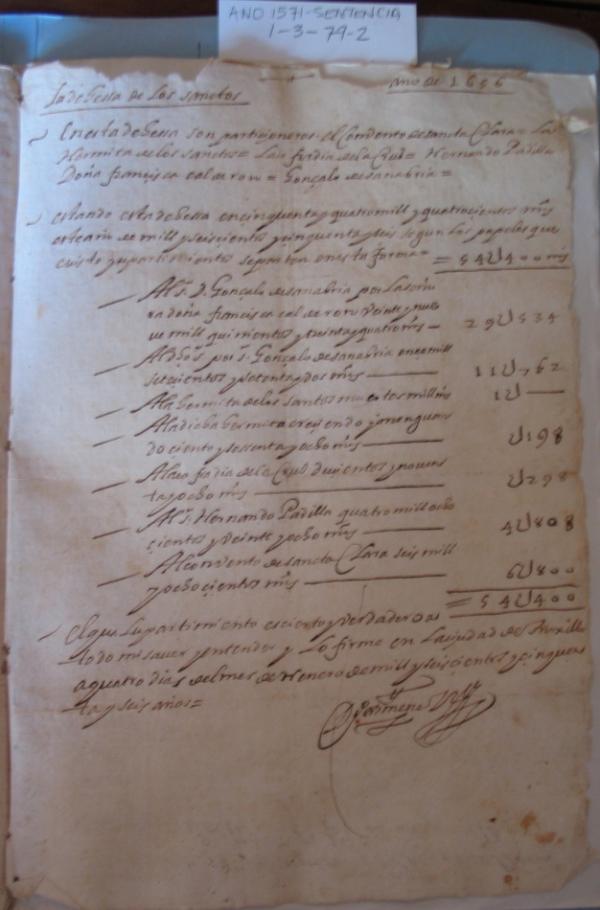 AÑO 1571-SENTENCIA
1-3-79-2
La dehessa de Los sanctos
Año de 1656
En esta dehessa son partiçioneros. el Combento de sancta Clara = Las
Hermita de los sanctos = La cofradia de la Cruz = Hernando Padilla
Doña françisca calderon = Gonçalo de sanabria =
estando esta dehessa en çinquenta y quatro mill y quatroçientos mrs
este año de mill y seisçientos y çinquenta y seis segun Los papeles que
repartimientos se parten en esta forma = = 54U400 mrs
Al s. D. Gonçalo de sanabria por La
ra doña françisca calderon Veinte y nue
ve mill quinientos y treinta y quatro mrs — 29U534
Al dho s. por s. Gonçalo de sanabria onçe mill
seteçientos y sesenta y dos mrs — 11U762
A la hermita de los santos mill mrs 1U —
A la dicha hermita
do çiento y nobenta y ocho mrs — U198
A la cofradia de la Cruz duçientos y noven
ta y ocho mrs — U298
Al s. Hernando Padilla quatro mill ocho
çientos y ocho mrs — 4U808
Al convento de sancta Clara seis mill
y ochoçientos mrs — 6U800
= 54U400
El qual repartimiento es çierto y verdadero a
todo mi saver y entender y Lo firme en La çiudad de Truxillo
a quatro dias del mes de henero de mill y seisçientos y çinquen
ta y seis años =